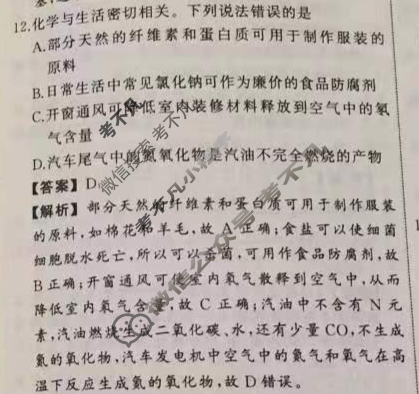 12.化学与生活密切相关。下列说法错误的是
A.部分天然的纤维素和蛋白质可用于制作服装的
原料
B.日常生活中常见氯化钠可作为廉价的食品防腐剂
C.开窗通风可降低室内装修材料释放到空气中的氡
气含量
D.汽车尾气中的氮氧化物是汽油不完全燃烧的产物
【答案】D
【解析】部分天然的纤维素和蛋白质可用于制作服装
的原料,如棉花和羊毛,故 A 正确;食盐可以使细菌
细胞脱水死亡,所以可以杀菌,可用作食品防腐剂,故
B 正确;开窗通风可使室内氡气散释到空气中,从而
降低室内氡气含量,故 C 正确;汽油中不含有 N 元
素,汽油燃烧生成二氧化碳、水,还有少量 CO,不生成
氮的氧化物,汽车发电机中空气中的氮气和氧气在高
温下反应生成氮的氧化物,故 D 错误。